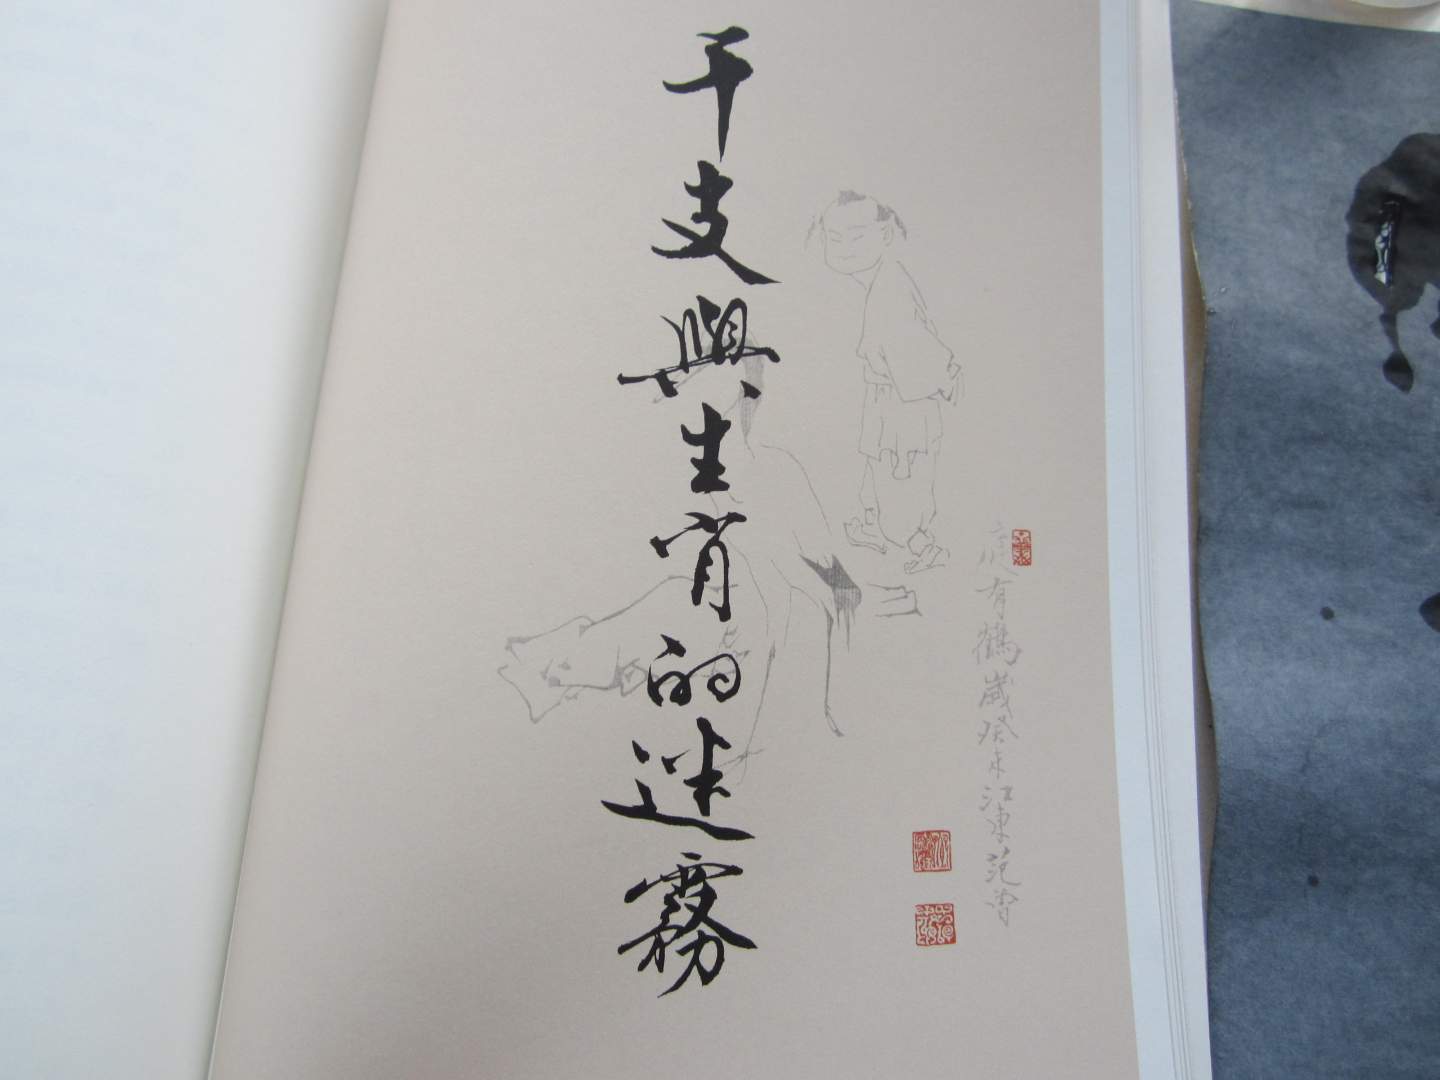 干支與生肖的迷霧
庭有鶴歲癸未江東范曾